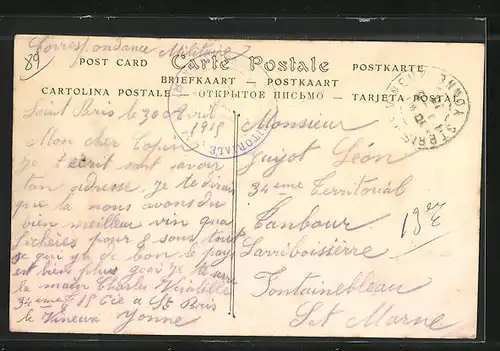 Correspondance Militaire
89
POST CARD Carte Postale POSTKARTE
BRIEFKAART — POSTKAART
CARTOLINA POSTALE — ОТКРЫТОЕ ПИСЬМО — TARJETA POSTAL
Saint Bris le 30 Avril
1915
Mon cher Copain
je t'écrit sans avoir
ton adresse, je te dirais
que la nous avons du
bien meilleur vin qua
pour 8 sous tout
se qui ya de bon le pays
est bien plus gaie je te serre
la main Charles
34eme T 18 Cie a St Bris
le Vineux Yonne
Monsieur
Guyot Léon
34eme Territorial
Tanbour
19e Cie
Lariboisierre
Fontainebleau
St Marne
YONNE